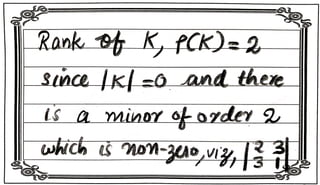 Rank of K, ρ(K) = 2
since |K| = 0 and there
is a minor of order 2
which is non-zero, viz, |2 3; 3 1|